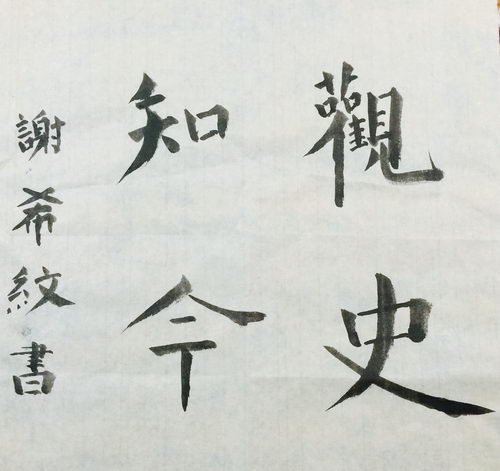 觀史
知今
謝希紋書